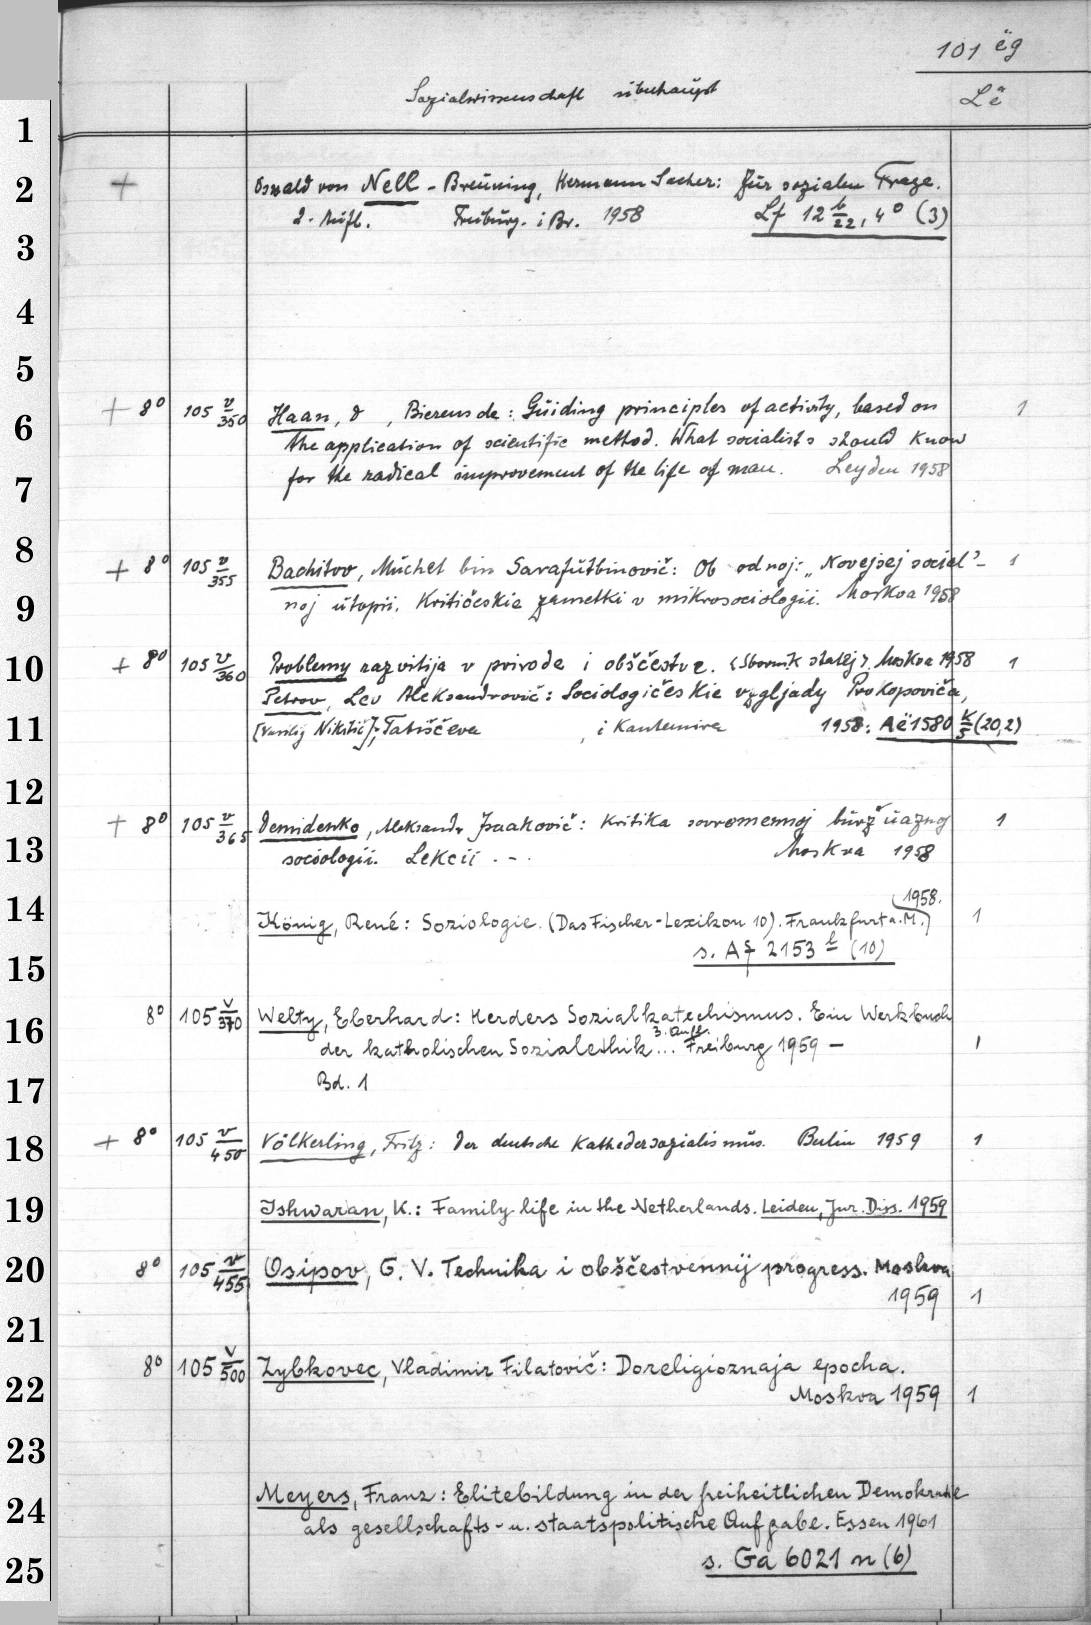 101 ëg
Sozialwissenschaft überhaupt Lë
1
2 + Oswald von Nell-Breuning, Hermann Sacher: Zur sozialen Frage.
2. Aufl. Freiburg. i Br. 1958 Lf 12 b/22, 4° (3)
3
4
5
6 + 8° 105 v/350 Haan, d , Bierens de: Guiding principles of activity, based on 1
the application of scientific method. What socialists should know
7 for the radical improvement of the life of man. Leyden 1958
8 + 8° 105 v/355 Bachitov, Muchet bin Sarafutbinovič: Ob odnoj: „Novejšej social'- 1
9 noj utopii. Kritičeskie zametki v mikrosociologii. Moskva 1958
10 + 8° 105 v/360 Problemy razvitija v prirode i obščestve. <Sbornik statej>. Moskva 1958 1
Petrov, Lev Aleksandrovič: Sociologičeskie vzgljady Prokopoviča,
11 [Vasilij Nikitič], Tatiščeva , i Kantemira 1958: Aë 1580 k/5 (20,2)
12
+ 8° 105 v/365 Demidenko, Aleksandr Isaakovič: Kritika sovremennoj buržuaznoj 1
13 sociologii. Lekcii . - . Moskva 1958
14 König, René: Soziologie. (Das Fischer-Lexikon 10). Frankfurt a. M.) 1958. 1
15 s. Af 2153 t (10)
16 8° 105 v/370 Welty, Eberhard: Herders Sozialkatechismus. Ein Werkbuch
der katholischen Sozialethik ... 3. Aufl. Freiburg 1959 — 1
17 Bd. 1
18 + 8° 105 v/450 Völkerling, Fritz: Der deutsche Kathedersozialismus. Berlin 1959 1
19 Ishwaran, K.: Family life in the Netherlands. Leiden, Jur. Diss. 1959
20 8° 105 v/455 Osipov, G. V. Technika i obščestvennij progress. Moskva
1959 1
21
8° 105 v/500 Zybkovec, Vladimir Filatovič: Doreligioznaja epocha.
22 Moskva 1959 1
23
24 Meyers, Franz: Elitebildung in der freiheitlichen Demokratie
als gesellschafts- u. staatspolitische Aufgabe. Essen 1961
25 s. Ga 6021 n (6)